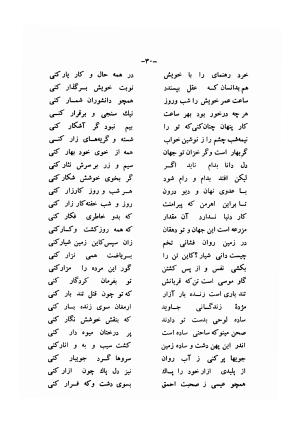 -۳۰-
خرد رهنمای را با خویش در همه حال و کار یار کنی
هم بدانسان که عقل بپسندد نوبت خویش برگذار کنی
ساعت عمر خویش را شب وروز همچو دانشوران شمار کنی
هرچه درخور بود بهر ساعت نیك سنجی و برقرار کنی
کار پنهان چنان‌کنی‌که تو را بیم نبود گر آشکار کنی
نیمه‌شب چشم را ز نوشین خواب شسته و گریه‌های زار کنی
گر بهار است وگر خزان تو جهان همه از خوی خود بهار کنی
دل دانا بدام ناید اگر سیم و زر بر سرش نثار کنی
لیکن افتد بدام و رام شود گر بخوی خوشش شکار کنی
با عدوی نهان و دیو درون هر شب و روز کارزار کنی
بر این اهرمن که پیرامنت روز و شب خفته‌کار زار کنی
کار دنیا ندارد آن مقدار که بدو خاطری فکار کنی
مزرعه است این جهان و تو دهقان همه روزش کشت‌وکار کنی
در زمین روان فشانی تخم روز سپس کاین زمین شیار کنی
چیست دانی شیار؟کاین تن را بریاضت همی نزار کنی
بکشی نفس و از پس کشتن گور این مرده را مزار کنی
گاو موسی است تن‌که قربانش تو بفرمان کردگار کنی
تند باری است زنده بار آزار که تو چون قتل تند بار کنی
مژدهٔ زندگانی جاوید ارمغان سوی زنده بار کنی
ساده لوحی بدست تو دادند که بنقش خوشش نگار کنی
صحن مینوکه ساختی ساده است پر درختان میوه دار کنی
اندر این پهن دشت بی‌به و نار کشت سیب و به و انار کنی
جویها پر کنی ز آب روان سروها گرد جویبار کنی
از زمین دل هزار خود را پاك نیز دل پاك چون ازار کنی
همچو عیسی ز صحبت احمق بسوی دشت وکه فرار کنی